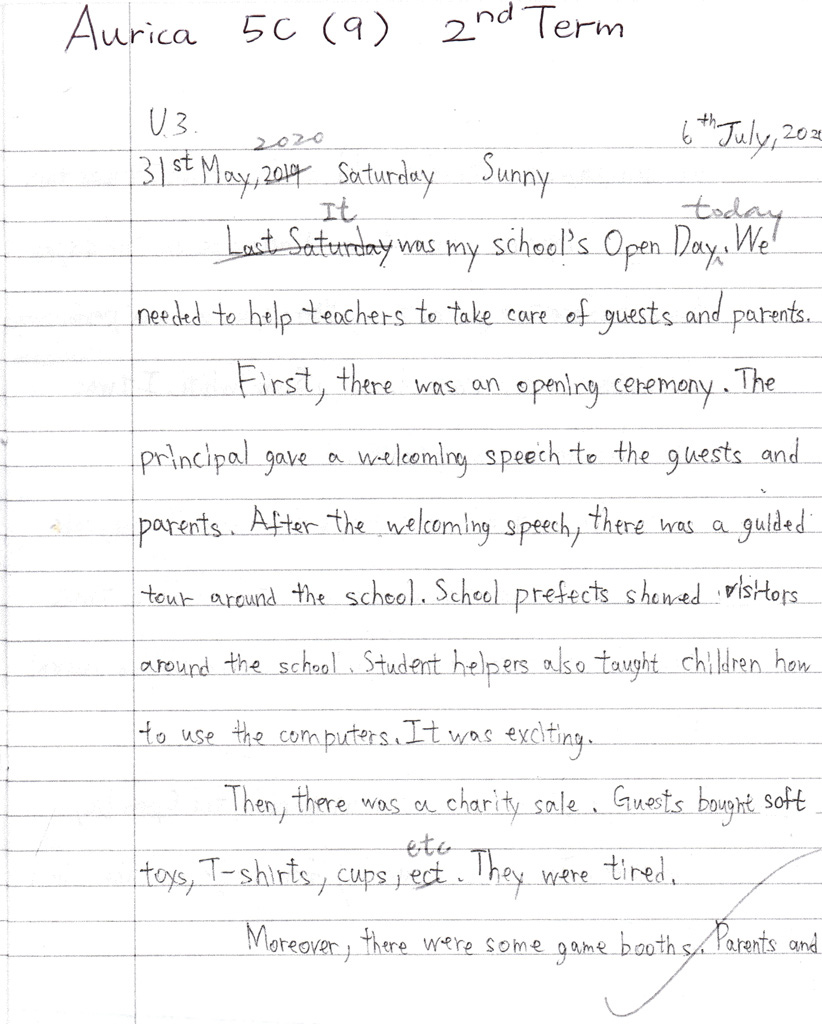 Aurica 5C (9) 2nd Term
U.3.
6th July, 202
2020
31st May, 2019 Saturday Sunny
It today
Last Saturday was my school's Open Day. We
needed to help teachers to take care of guests and parents.
First, there was an opening ceremony. The
principal gave a welcoming speech to the guests and
parents. After the welcoming speech, there was a guided
tour around the school. School prefects showed visitors
around the school. Student helpers also taught children how
to use the computers. It was exciting.
Then, there was a charity sale. Guests bought soft
etc
toys, T-shirts, cups, ect. They were tired.
Moreover, there were some game booths. Parents and